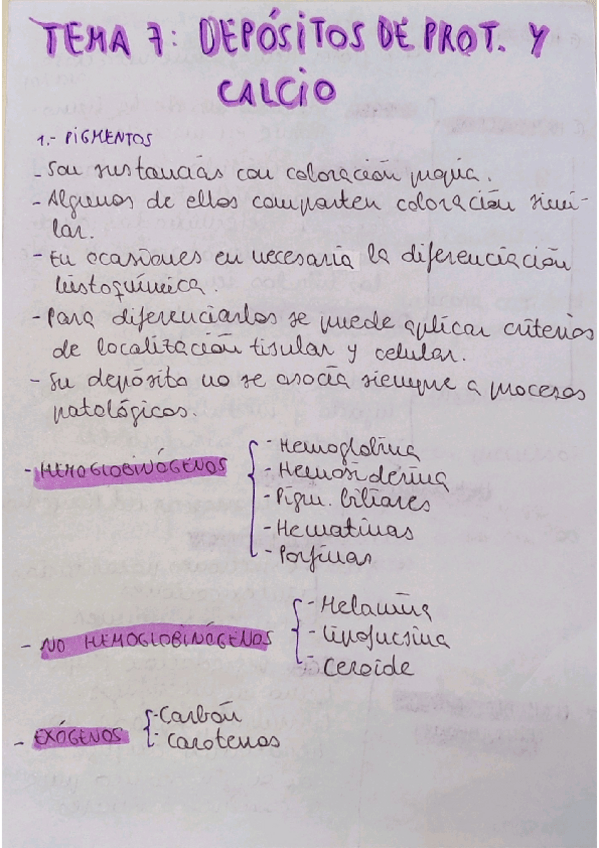 TEMA 7: DEPÓSITOS DE PROT. Y
CALCIO
1.- PIGMENTOS
- Son sustancias con coloración propia.
- Algunos de ellos comparten coloración simi-
lar.
- En ocasiones en necesaria la diferenciación
histoquímica.
- Para diferenciarlos se puede aplicar criterios
de localización tisular y celular.
- Su depósito no se asocia siempre a procesos
patológicos.
- HEMOGLOBINÓGENOS
- Hemoglobina
- Hemosiderina
- Pigm. biliares
- Hematinas
- Porfinas
- NO HEMOGLOBINÓGENOS
- Melanina
- Lipofucsina
- Ceroide
- EXÓGENOS
- Carbón
- Carotenos